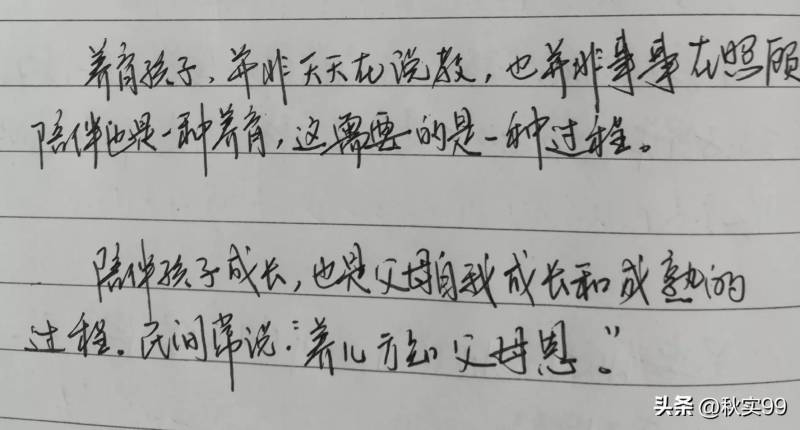 养育孩子，并非天天在说教，也并非事事在照顾
陪伴也是一种养育，这需要的是一种过程。
陪伴孩子成长，也是父母自我成长和成熟的
过程。民间常说：“养儿方知父母恩。”
头条 @秋实99